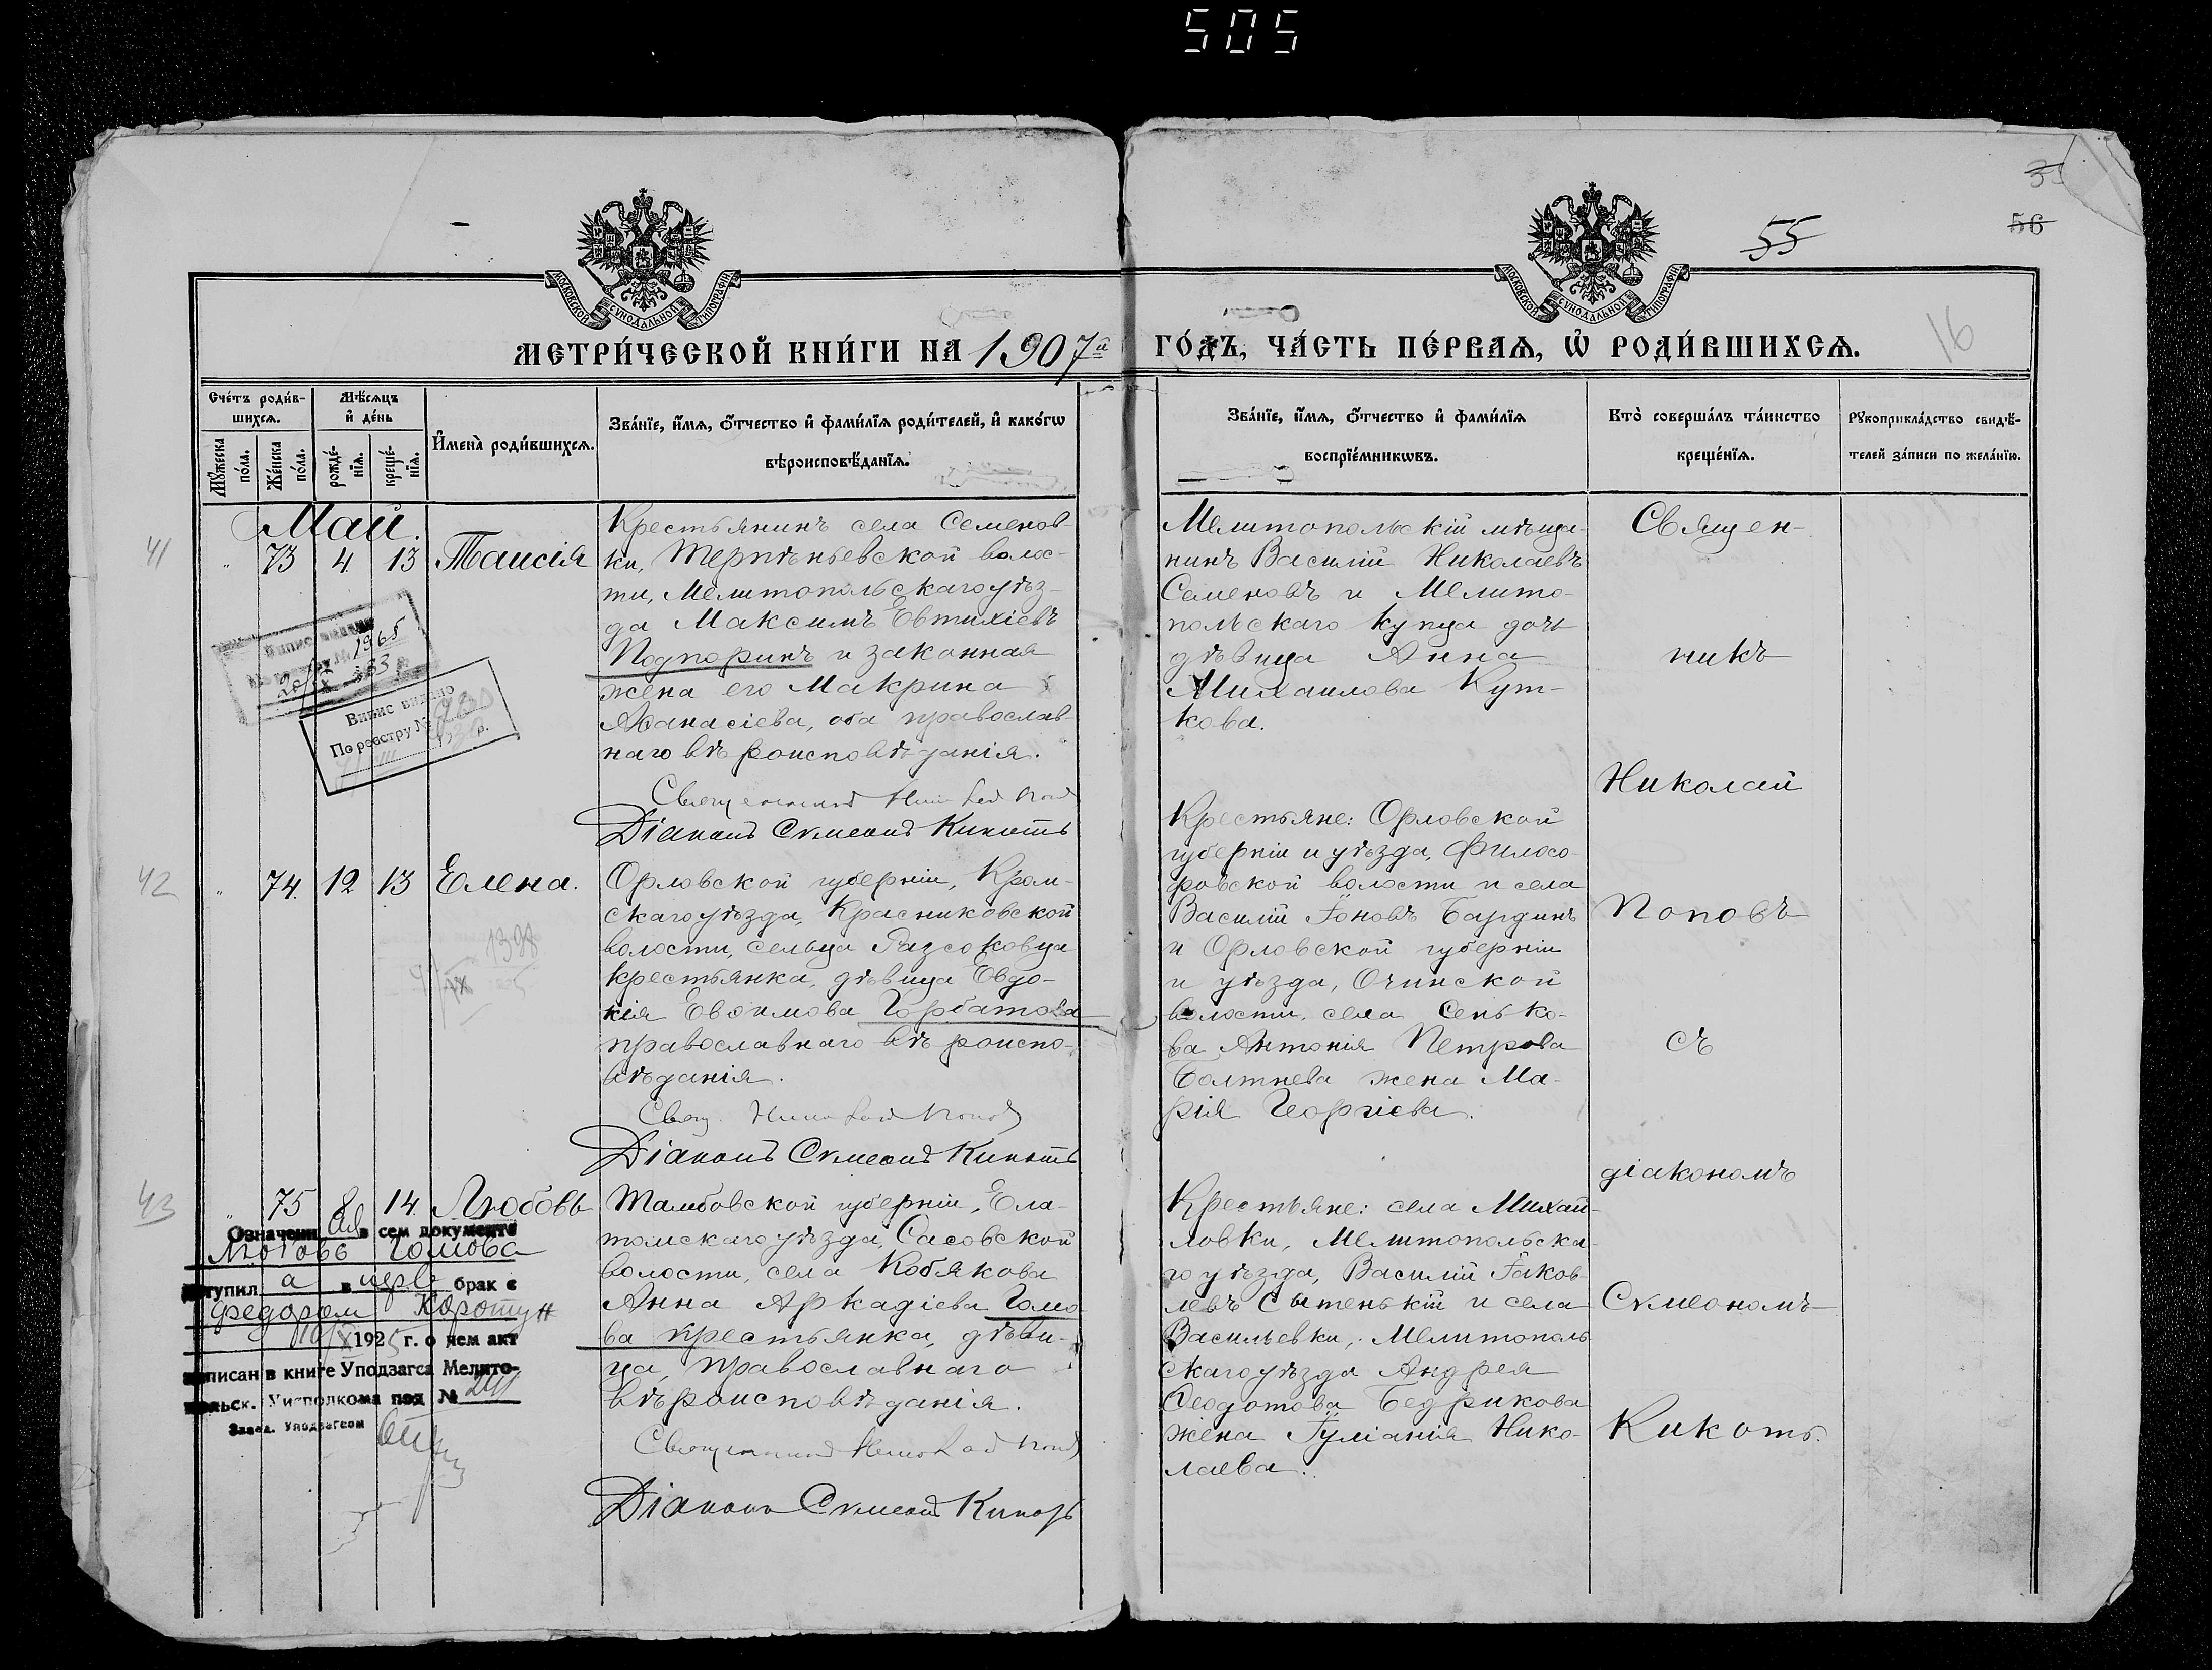 505
35
56
55
16
МОСКОВСКОЙ СѴНОДАЛЬНОЙ ТИПОГРАФІИ
МОСКОВСКОЙ СѴНОДАЛЬНОЙ ТИПОГРАФІИ
МЕТРИ́ЧЕСКОЙ КНИ́ГИ НА 1907й ГО́ДЪ, ЧА́СТЬ ПЕ́РВАѦ, Ѡ РОДИ́ВШИХСѦ.
Сче́тъ роди́в-
шихсѧ.
Мꙋ́жеска
по́ла.
Же́нска
по́ла.
Мѣ́сѧцъ
и҆ де́нь
рожде́-
нїѧ.
креще́-
нїѧ.
И҆мена̀ роди́вшихсѧ.
Зва́нїе, и҆́мѧ, ѻ҆́тчество и҆ фами́лїѧ роди́телей, и҆ како́гѡ
вѣроисповѣ́данїѧ.
Зва́нїе, и҆́мѧ, ѻ҆́тчество и҆ фами́лїѧ
воспрїе́мникѡвъ.
Кто̀ соверша́лъ та́инство
креще́нїѧ.
Рꙋкоприкла́дство свидѣ́-
телей за́писи по жела́нїю.
Май.
41
" 73 4 13 Таисія
Крестьянинъ села Семенов-
ки, Терпѣньевской волос-
ти, Мелитопольскаго уѣз-
да Максимъ Евтихіевъ
Подпоринъ и законная
жена его Макрина
Аѳанасіева, оба православ-
наго вѣроисповѣданія.
Священникъ Николай Поповъ
Діаконъ Сѵмеонъ Кикоть
Мелитопольскій мѣща-
нинъ Василій Николаевъ
Семеновъ и Мелито-
польскаго купца дочь
дѣвица Анна
Михаилова Кут-
кова.
Выпис видано
1965
20/IX 33 р.
Випис видано
По реєстру №
р.
42
" 74. 12 13 Елена.
Орловской губерніи, Кром-
скаго уѣзда, Красниковской
волости, сельца Разсоховца
крестьянка, дѣвица Евдо-
кія Евѳимова Горбатова
православнаго вѣроиспо-
вѣданія.
Свящ. Николай Поповъ
Діаконъ Сѵмеонъ Кикоть
1398
Крестьяне: Орловской
губерніи и уѣзда, Филосо-
фовской волости и села
Василій Іоновъ Бардинъ
и Орловской губерніи
и уѣзда, Очинской
волости, села Сенько-
ва Антонія Петрова
Болтнева жена Ма-
рія Георгіева.
43
" 75 8 14. Любовь
Тамбовской губерніи, Ела-
томскаго уѣзда, Сасовской
волости, села Кобякова
Анна Аркадіева Гомо-
ва крестьянка, дѣви-
ца, православнаго
вѣроисповѣданія.
Священникъ Николай Поповъ
Діаконъ Сѵмеонъ Кикоть
Крестьяне: села Михай-
ловки, Мелитопольска-
го уѣзда, Василій Іаков-
левъ Сытенькій и села
Васильевки, Мелитополь-
скаго уѣзда Андрея
Ѳеодотова Бедрикова
жена Іуліанія Нико-
лаева.
Означенн ая в сем документе
Любовь Гомова
вступил а в церв брак с
Федором Коротун
10/X 1925 г. о чем акт
записан в книге Уподзагса Мелито-
польск. Уисполкома под №
Завед. Уподзагсом
Священ-
никъ
Николай
Поповъ
съ
діакономъ
Сѵмеономъ
Кикоть.